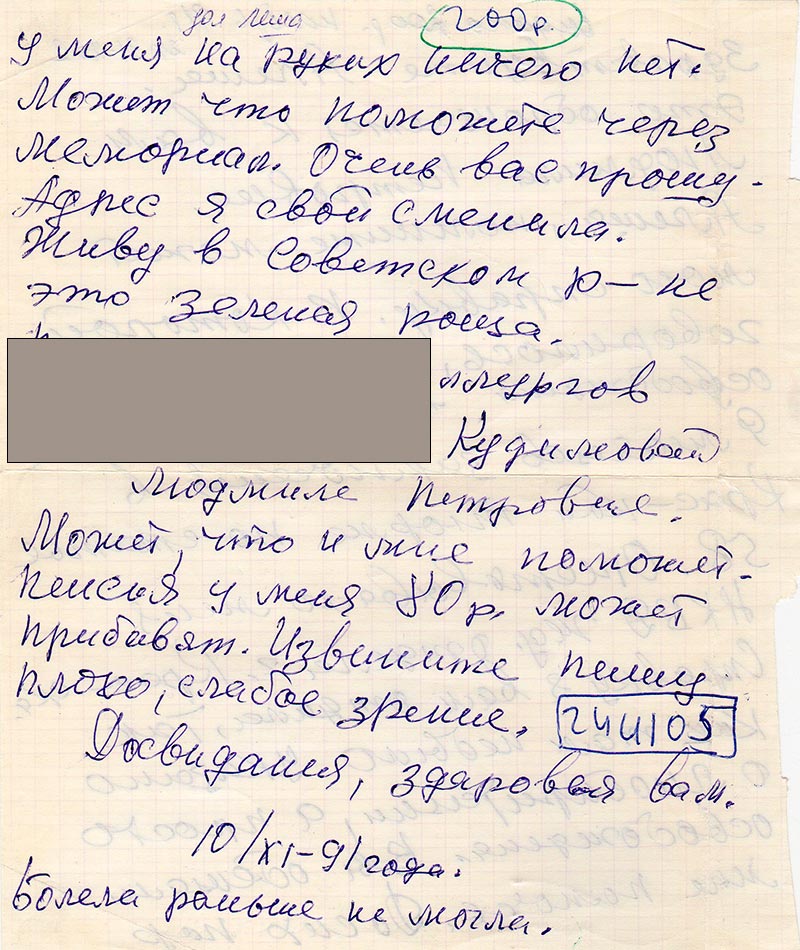 200р.
у меня на руках ничего нет.
Может что поможете через
мемориал. Очень вас прошу.
Адрес я свой сменила.
Живу в Советском р-не
это зеленая роща.
ллургов
Кудимовой
Людмиле Петровне.
Может, что и мне поможет.
пенсия у меня 80 р. может
прибавят. Извените пишу
плохо, слабое зрение.
244105
Досвидания, здаровья вам.
10/XI-91 года.
Болела раньше не могла.